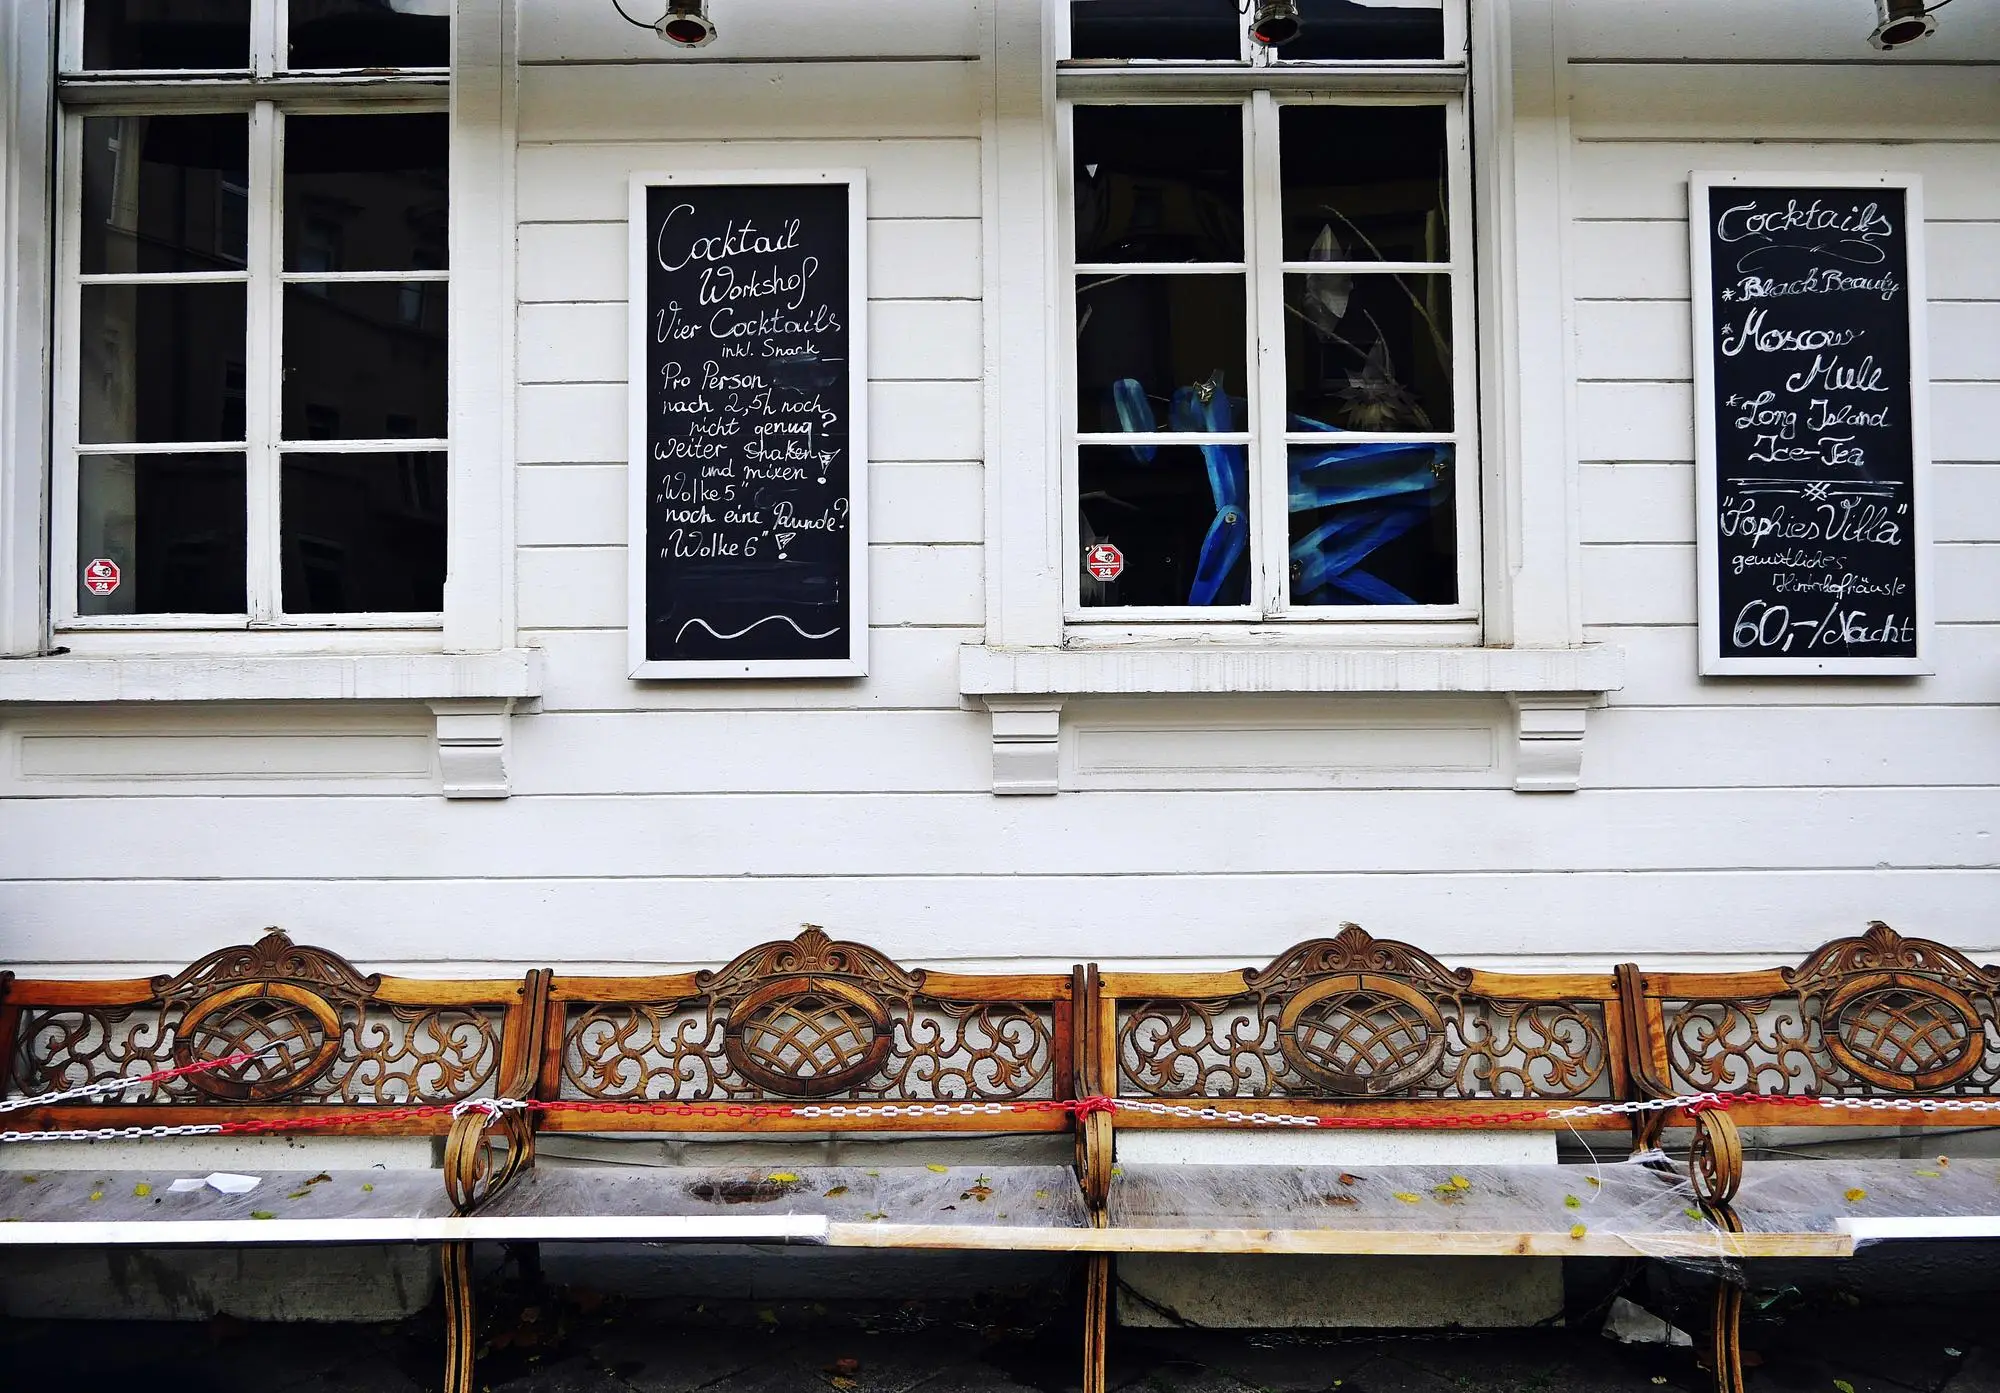 Cocktail
Workshop
Vier Cocktails
inkl. Snack
Pro Person
nach 2,5h noch
nicht genug?
weiter shaken
und mixen!
„Wolke 5"
noch eine Runde?
„Wolke 6"!
24
24
Cocktails
* Black Beauty
* Moscow
Mule
* Long Island
Ice-Tea
"Sophies Villa"
gemütliches
Hinterhofhäusle
60,-/Nacht